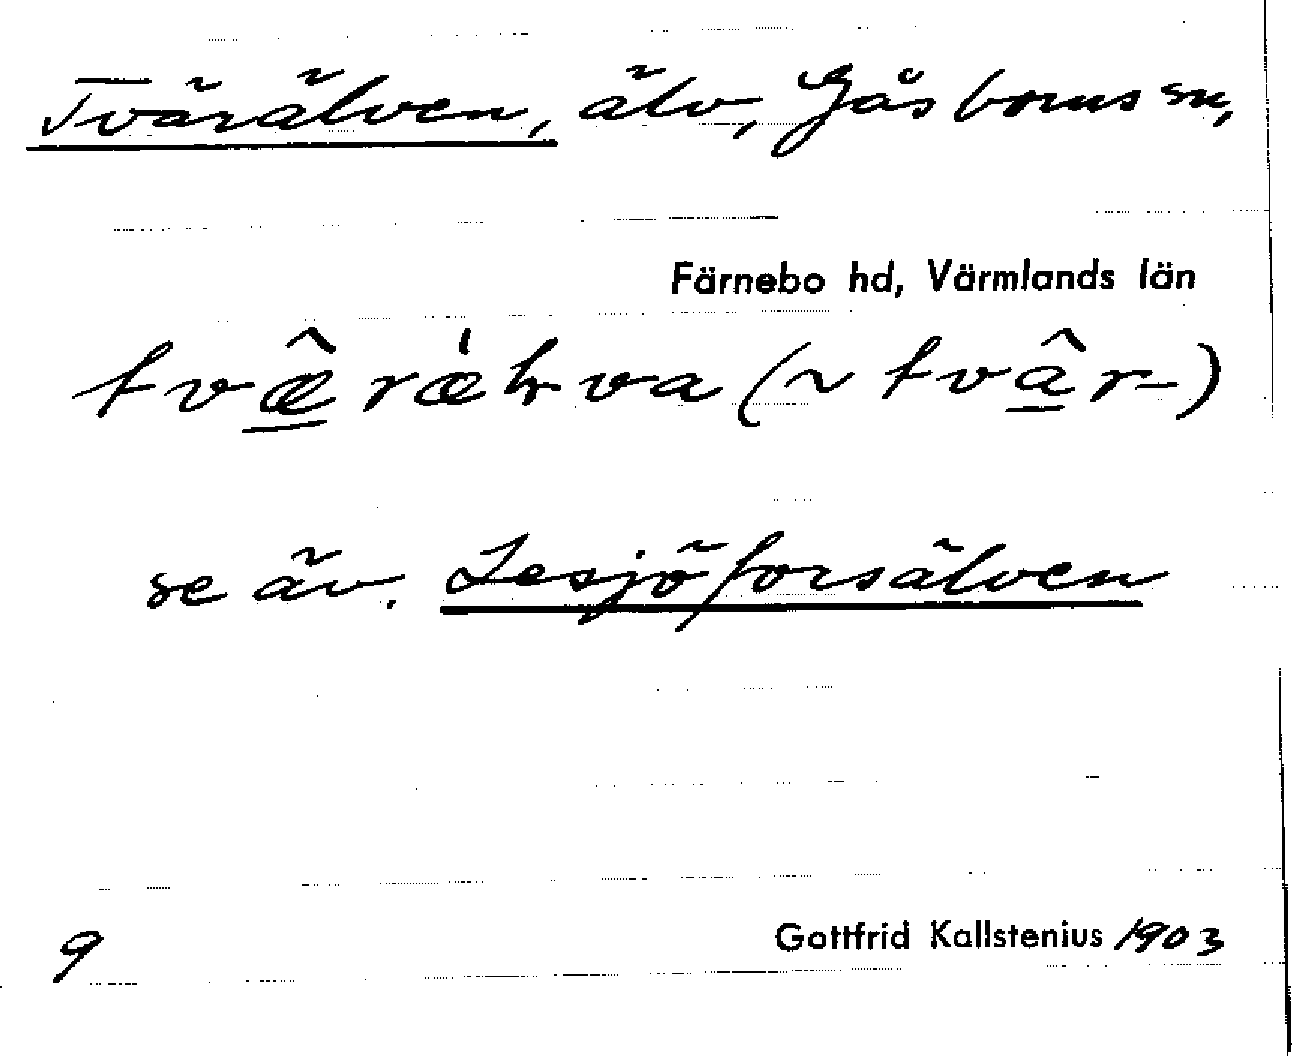 Tvärälven, älv, Gåsborns sn,
Färnebo hd, Värmlands län
tvæ̂rælva (~ tvâr-)
se äv. Lesjöforsälven
9
Gottfrid Kallstenius 1903